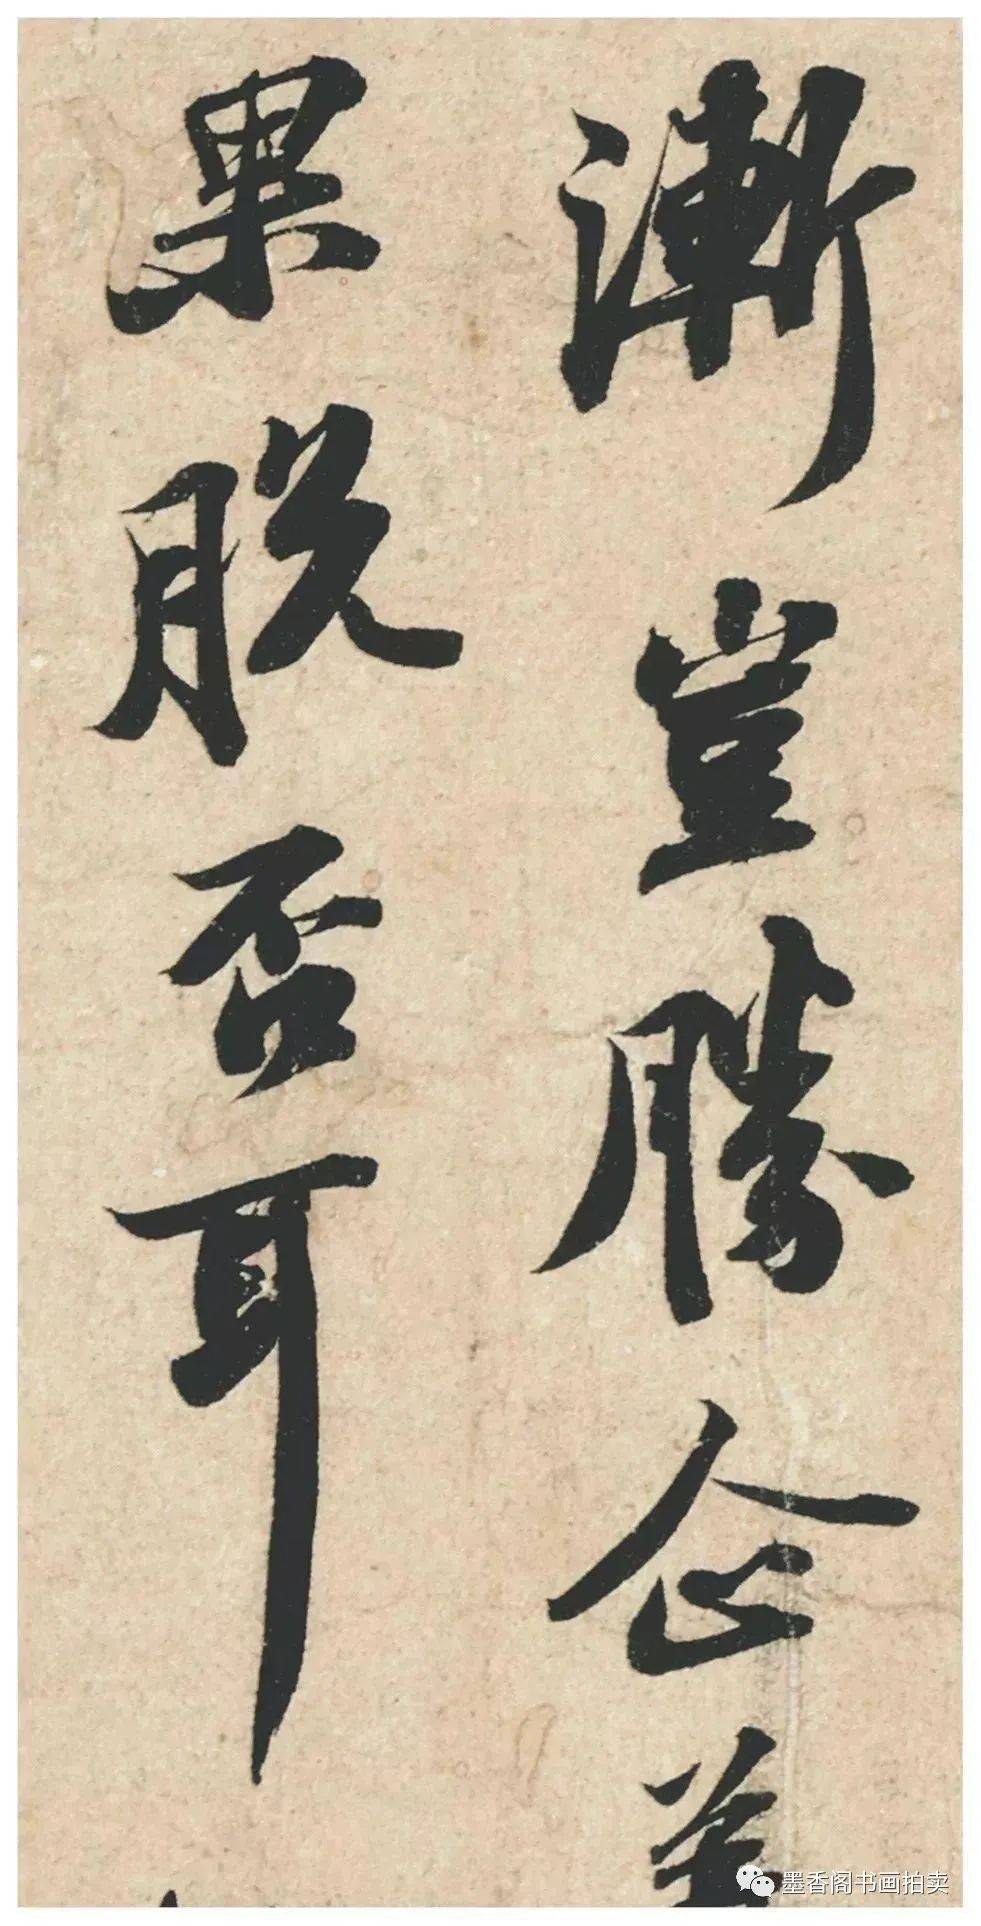 漸豈勝企羡
果脱否耳
墨香阁书画拍卖